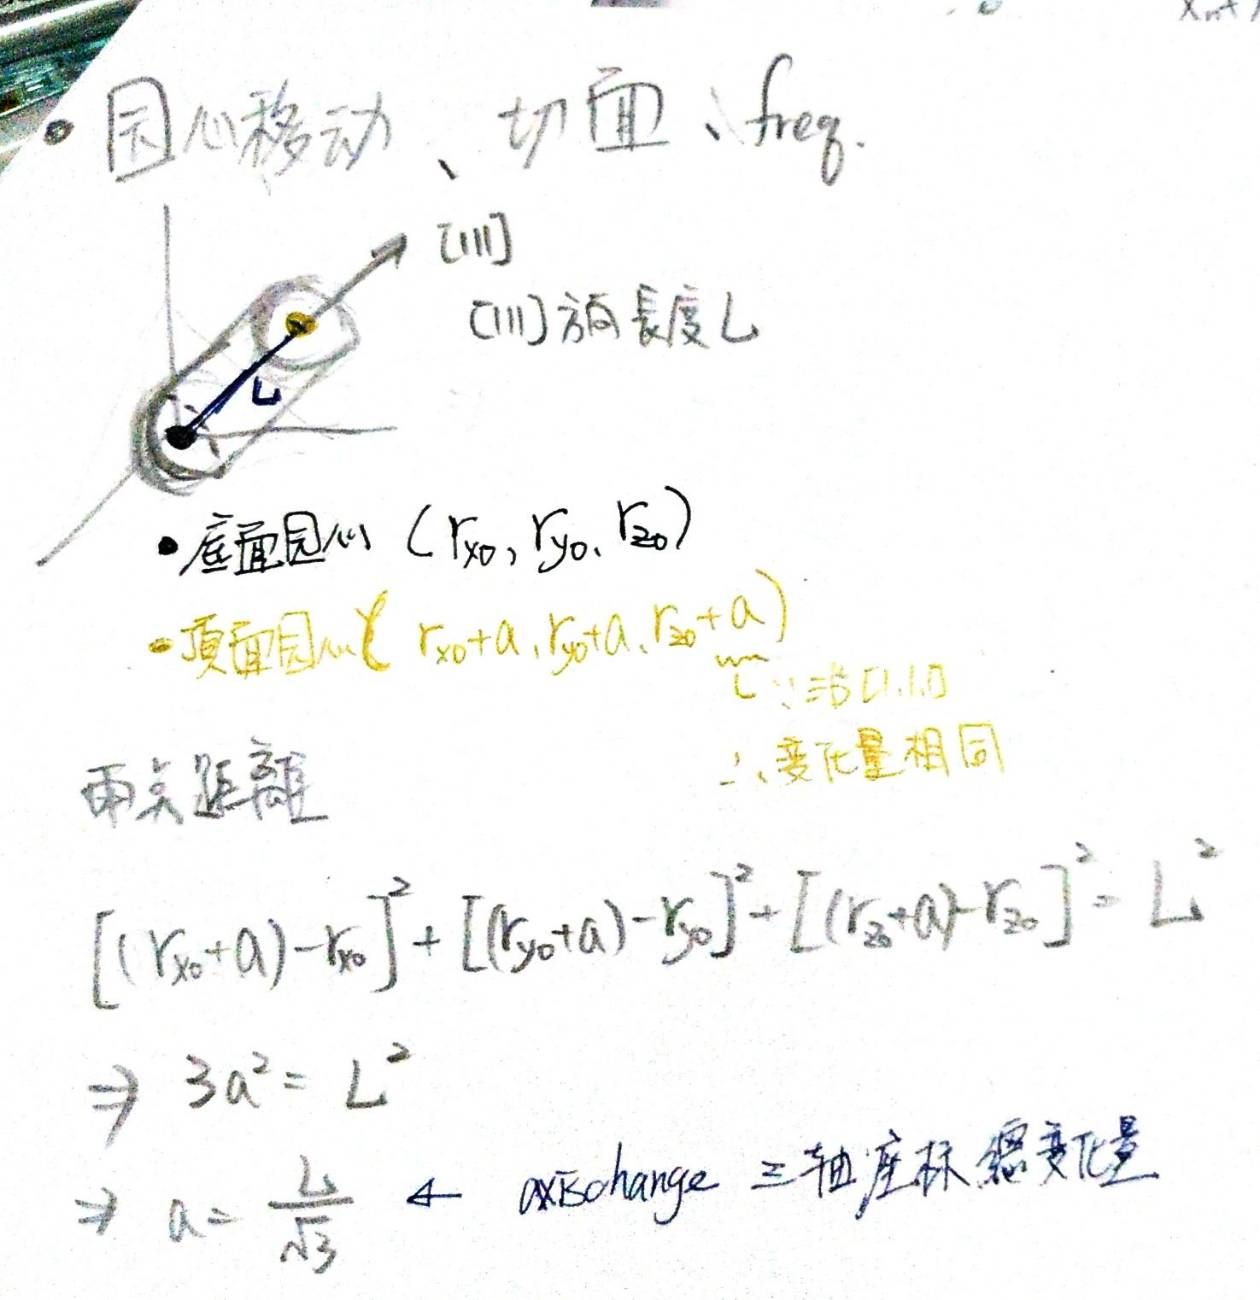 • 园心移动、切面、freq.
[111]
[111]方向長度L
L
• 底面园心 (rx0, ry0, rz0)
• 頂面园心( rx0+a, ry0+a, rz0+a)
∵ [1.1.1]
∴ 变化量相同
兩点距離
[(rx0+a)-rx0]² + [(ry0+a)-ry0]² + [(rz0+a)-rz0]² = L²
⇒ 3a² = L²
⇒ a = L/√3 ← axischange 三軸座标總变化量